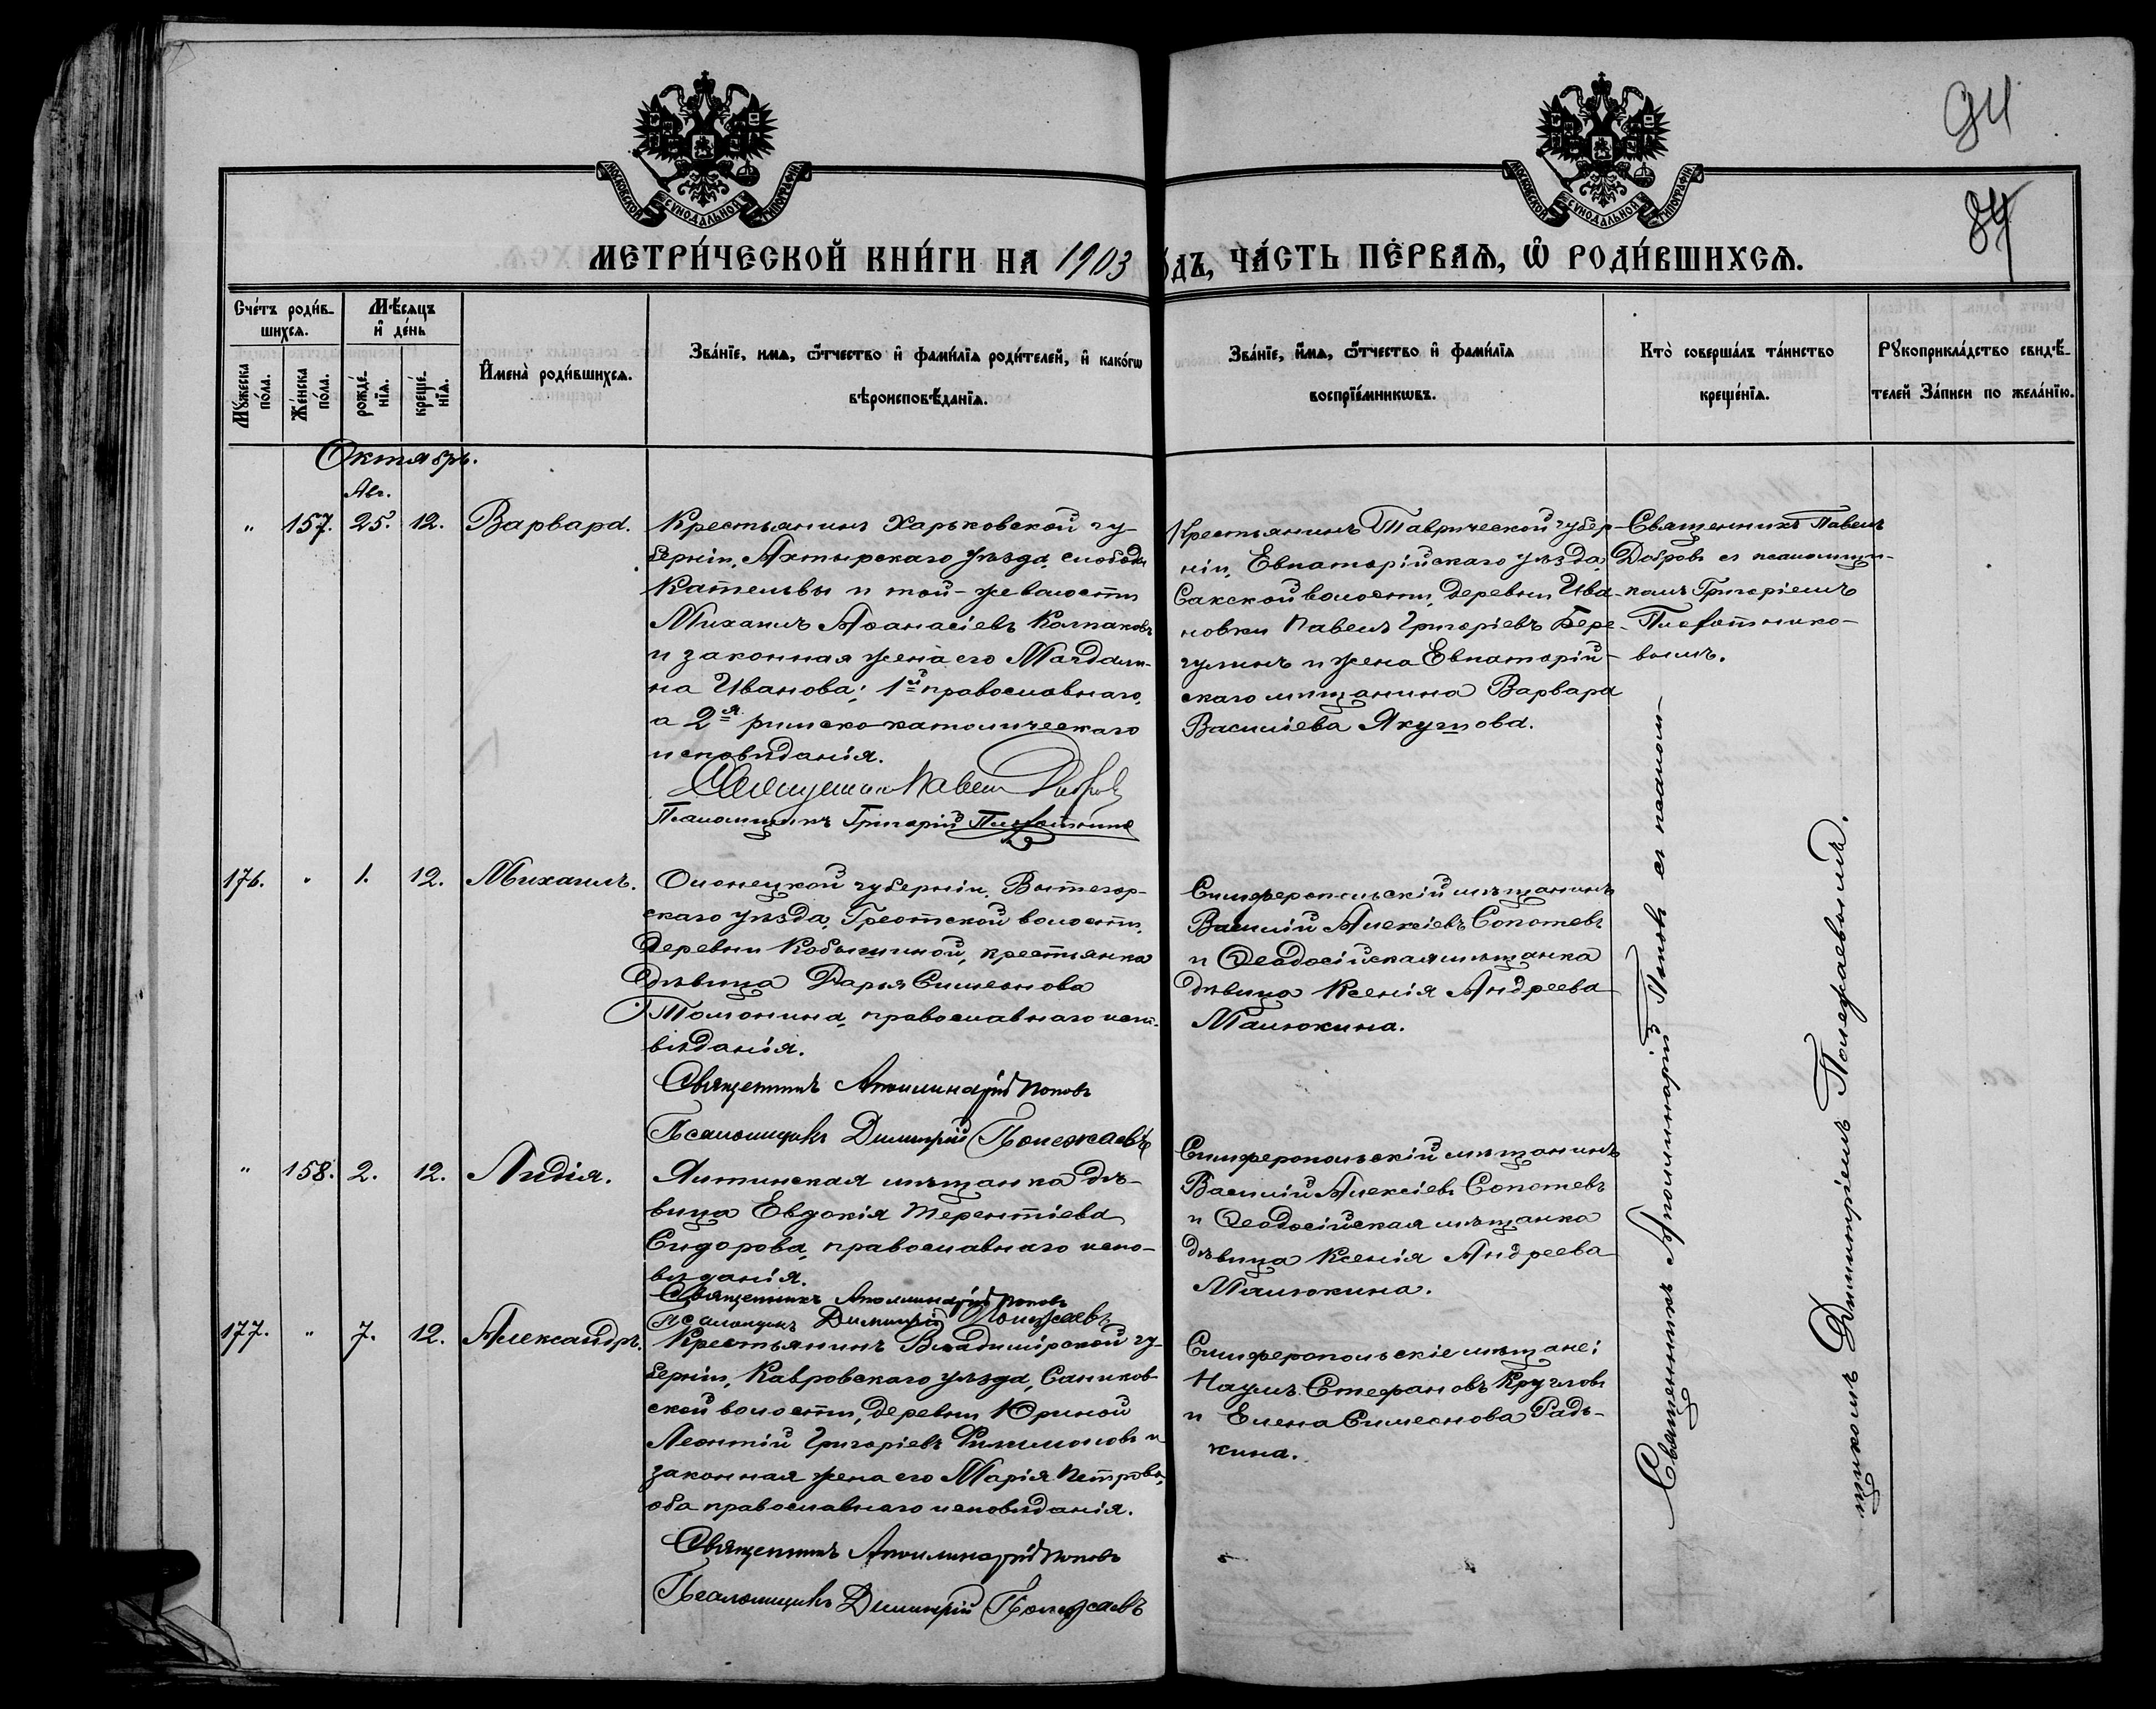 94
84
МОСКОВСКОЙ СѴНОДАЛЬНОЙ ТИПОГРАФІИ
МОСКОВСКОЙ СѴНОДАЛЬНОЙ ТИПОГРАФІИ
МЕТРИ́ЧЕСКОЙ КНИ́ГИ НА 1903
ОДЪ, ЧА́СТЬ ПЕ́РВАѦ, Ѡ҆ РОДИ́ВШИХСѦ.
Сче́тъ роди́в-
шихсѧ.
Мꙋ́жеска
по́ла.
Же́нска
по́ла.
Мѣ́сѧцъ
и҆ де́нь
рожде́-
нїѧ.
креще́-
нїѧ.
И҆мена̀ роди́вшихсѧ.
Зва́нїе, имѧ, ѻ҆́тчество и҆ фами́лїѧ роди́телей, и҆ како́гѡ
вѣроисповѣ́данїѧ.
Зва́нїе, и҆́мѧ, ѻ҆́тчество и҆ фами́лїѧ
воспрїе́мникѡвъ.
Кто̀ соверша́лъ та́инство
креще́нїѧ.
Рꙋкоприкла́дство свидѣ́-
телей За́писи по жела́нїю.
Октябрь.
Авг.
" 157. 25. 12. Варвара.
Крестьянинъ Харьковской гу-
берніи, Ахтырскаго уѣзда, слободы
Котельвы и той-же волости
Михаилъ Аѳанасіевъ Колпаковъ
и законная жена его Магдали-
на Иванова; 1й православнаго,
а 2я римско-католическаго
исповѣданія.
Священникъ Павелъ Добровъ
Псаломщикъ Григорій
Крестьянинъ Таврической губер-
ніи, Евпаторійскаго уѣзда,
Сакской волости, деревни Ива-
новки Павелъ Григоріевъ Бере-
гулинъ и жена Евпаторій-
скаго мѣщанина Варвара
Василіева Якушова.
Священникъ Павелъ
Добровъ съ псаломщи-
комъ Григоріемъ
вымъ.
176. " 1. 12. Михаилъ.
Олонецкой губерніи, Вытегор-
скаго уѣзда, волости,
деревни Кобылиной, крестьянка
дѣвица Дарья Симеонова
Толонина, православнаго испо-
вѣданія.
Священникъ Аполлинарій Поповъ
Псаломщикъ Димитрій Полежаевъ
Симферопольскій мѣщанинъ
Василій Алексіевъ Сопотевъ
и Ѳеодосійская мѣщанка
дѣвица Ксенія Андреева
Малюкина.
Священникъ Аполлинарій Поповъ съ псалом-
щикомъ Димитріемъ Полежаевымъ.
" 158. 2. 12. Лидія.
Ялтинская мѣщанка дѣ-
вица Евдокія Терентіева
Сидорова, православнаго испо-
вѣданія.
Священникъ Аполлинарій Поповъ
Псаломщикъ Димитрій Полежаевъ
Симферопольскій мѣщанинъ
Василій Алексіевъ Сопотевъ
и Ѳеодосійская мѣщанка
дѣвица Ксенія Андреева
Малюкина.
177. " 7. 12. Александръ.
Крестьянинъ Владимірской гу-
берніи, Ковровскаго уѣзда, Саников-
ской волости, деревни Юриной
Леонтій Григоріевъ Филимоновъ и
законная жена его Марія Петрова,
оба православнаго исповѣданія.
Священникъ Аполлинарій Поповъ
Псаломщикъ Димитрій Полежаевъ
Симферопольскіе мѣщане:
Наумъ Стефановъ Кругловъ
и Елена Симеонова Радь-
кина.